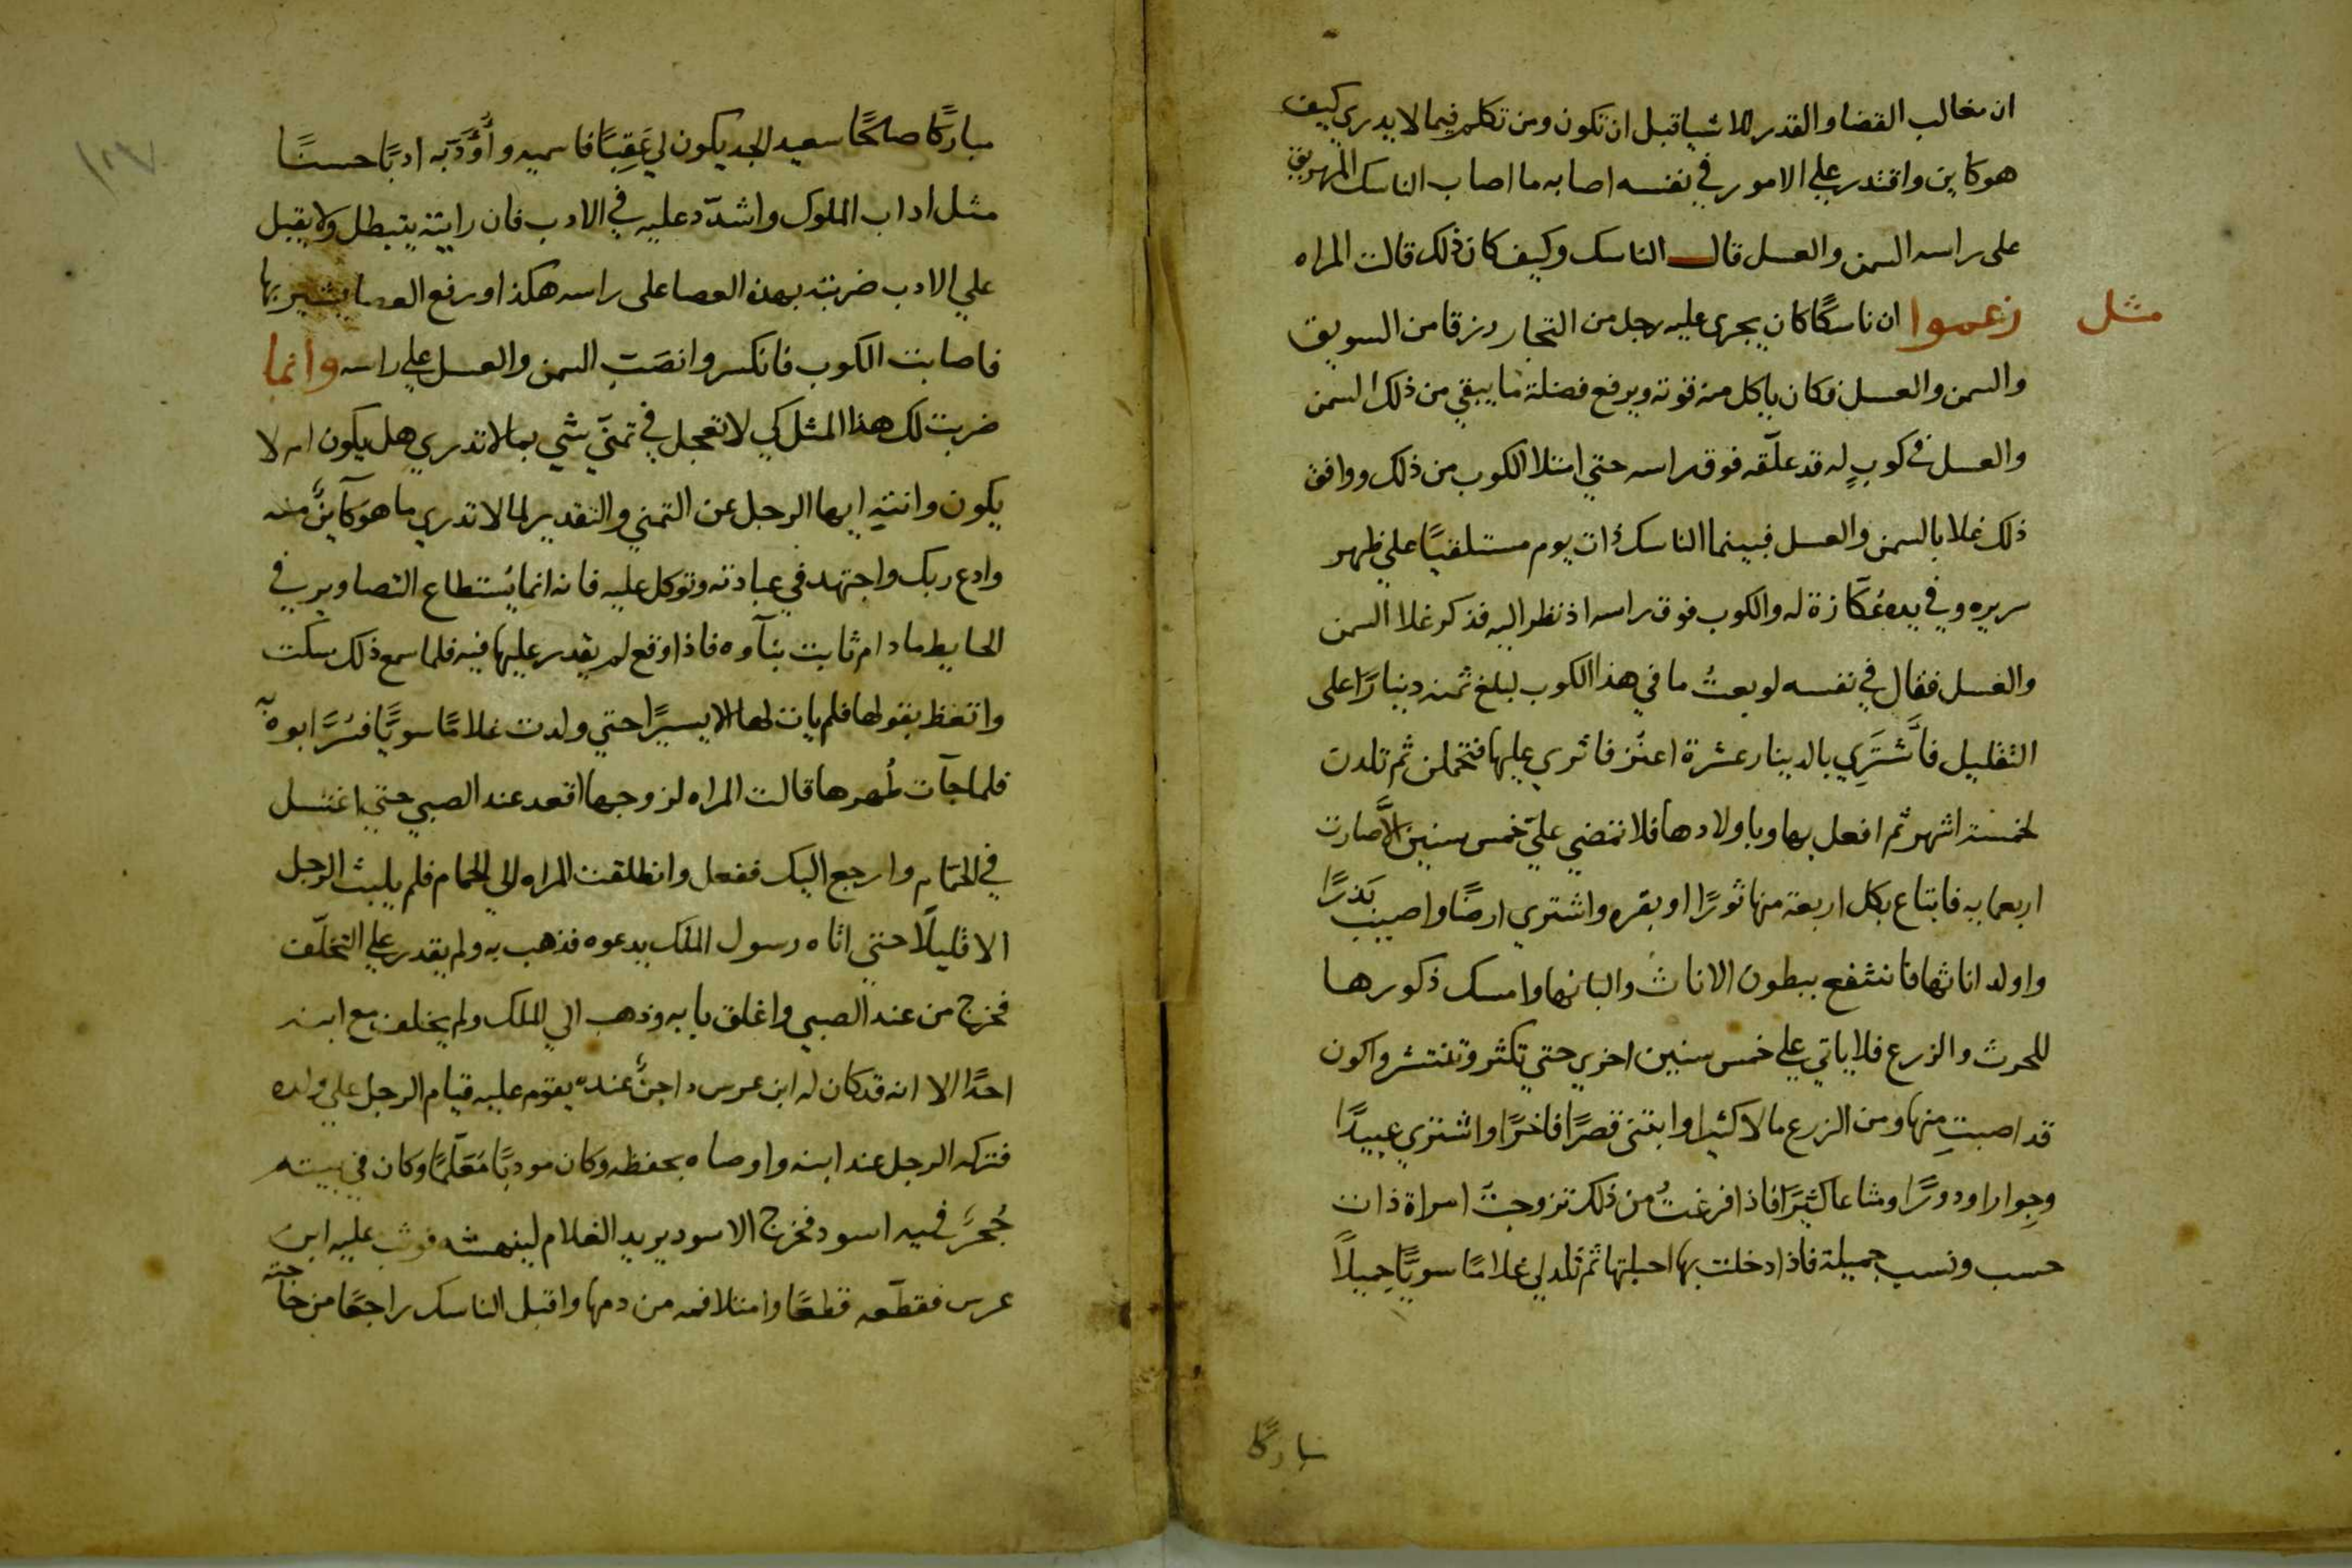 ان مغالب القضا والقدر للاشيا قبل ان تكون ومن تكلم فيما لا يدري كيف
هو كاين واقتدر علي الامور في نفسه اصابه ما اصاب الناسك المهريق
على راسه السمن والعسل قال الناسك وكيف كان ذلك قالت المراه
مثل
زعموا ان ناسكًا كان يجرى عليه رجل من التجار رزقا من السويق
والسمن والعسل فكان ياكل منه قوته ويرفع فضلة ما يبقي من ذلك السمن
والعسل في كوبٍ له قد علّقه فوق راسه حتي امتلا الكوب من ذلك ووافق
ذلك غلا بالسمن والعسل فبينما الناسك ذات يوم مستلقيًا علي ظهر
سريره وفي يده عُكّازة له والكوب فوق راسه اذ نظر اليه فذكر غلا السمن
والعسل فقال في نفسه لو بعتُ ما في هذا الكوب لبلغ ثمنه دينارًا على
التقليل فأَشتَرِي بالدينار عشرة اعنُز فاثري عليها فتحملن ثم تلدن
لخمسة اشهر ثم افعل بها وباولادها فلا تمضي عليّ خمس سنين الاَّ صارت
اربعمايه فابتاع بكل اربعة منها ثورًا او بقره واشتري ارضًا واصيب بَذرًا
واولد اناثها فانتفع ببطون الاناث والبانها وامسك ذكورها
للحرث والزرع فلا ياتي علي خمس سنين اخري حتي تكثر وتنتشر واكون
قد اصبتِ منها ومن الزرع مالا كثيرا وابتنى قصرًا فاخرًا واشتري عبيدًا
وجوارا ودورًا ومتاعا كثيرًا فاذا فرغتُ من ذلك تزوجتُ امراة ذات
حسب ونسب جميلة فاذا دخلت بها احبلتها ثم تلد لي غلامًا سويًّا جميلاً
مباركًا
١٢٧
مباركًا صالحًا سعيد الجد يكون لي عَقِبًا فاسميه واُؤَدِّبه ادبًا حسنًا
مثل اداب الملوك واشدّد عليه في الادب فان رايته يتبطل ولا يقبل
علي الادب ضربته بهذه العصا على راسه هكذا ورفع العصا يشير بها
فاصابت الكوب فانكسر وانصَبّ السمن والعسل علي راسه وانما
ضربت لك هذا المثل كي لا تعجل في تمنّي شي بما لا تدري هل يكون ام لا
يكون وانته ايها الرجل عن التمني والتقدير لما لا تدري ما هو كآينٌ منه
وادع ربك واجتهد في عبادته وتوكل عليه فانه انما يُستطاع التصاوير في
الحايط ما دام ثابت بنآوه فاذا وقع لم يقدر عليها فيه فلما سمع ذلك سكت
واتعظ بقولها فلم يات لها الا يسيرًا حتي ولدت غلامًا سويًّا فسُرَّ ابوه به
فلما جآت طُهرها قالت المراه لزوجها اقعد عند الصبي حتي اغتسل
في الحمّام وارجع اليك ففعل وانطلقت المراه الي الحمام فلم يلبث الرجل
الا قليلًا حتي اتاه رسول الملك يدعوه فذهب به ولم يقدر علي التخلّف
فخرج من عند الصبي واغلق بابه وذهب الي الملك ولم يخلف مع ابنه
احدًا الا انه قد كان له ابن عرس داجنٌ عنده يقوم عليه قيام الرجل علي ولده
فتركه الرجل عند ابنه واوصاه بحفظه وكان مودبًا مُعَلّمًا وكان في بيته
جُحرٌ فيه اسود فخرج الاسود يريد الغلام لينهشه فوثب عليه ابنُ
عرس فقطّعه قطعًا وامتلا فمه من دمها واقبل الناسك راجعًا من حاجته